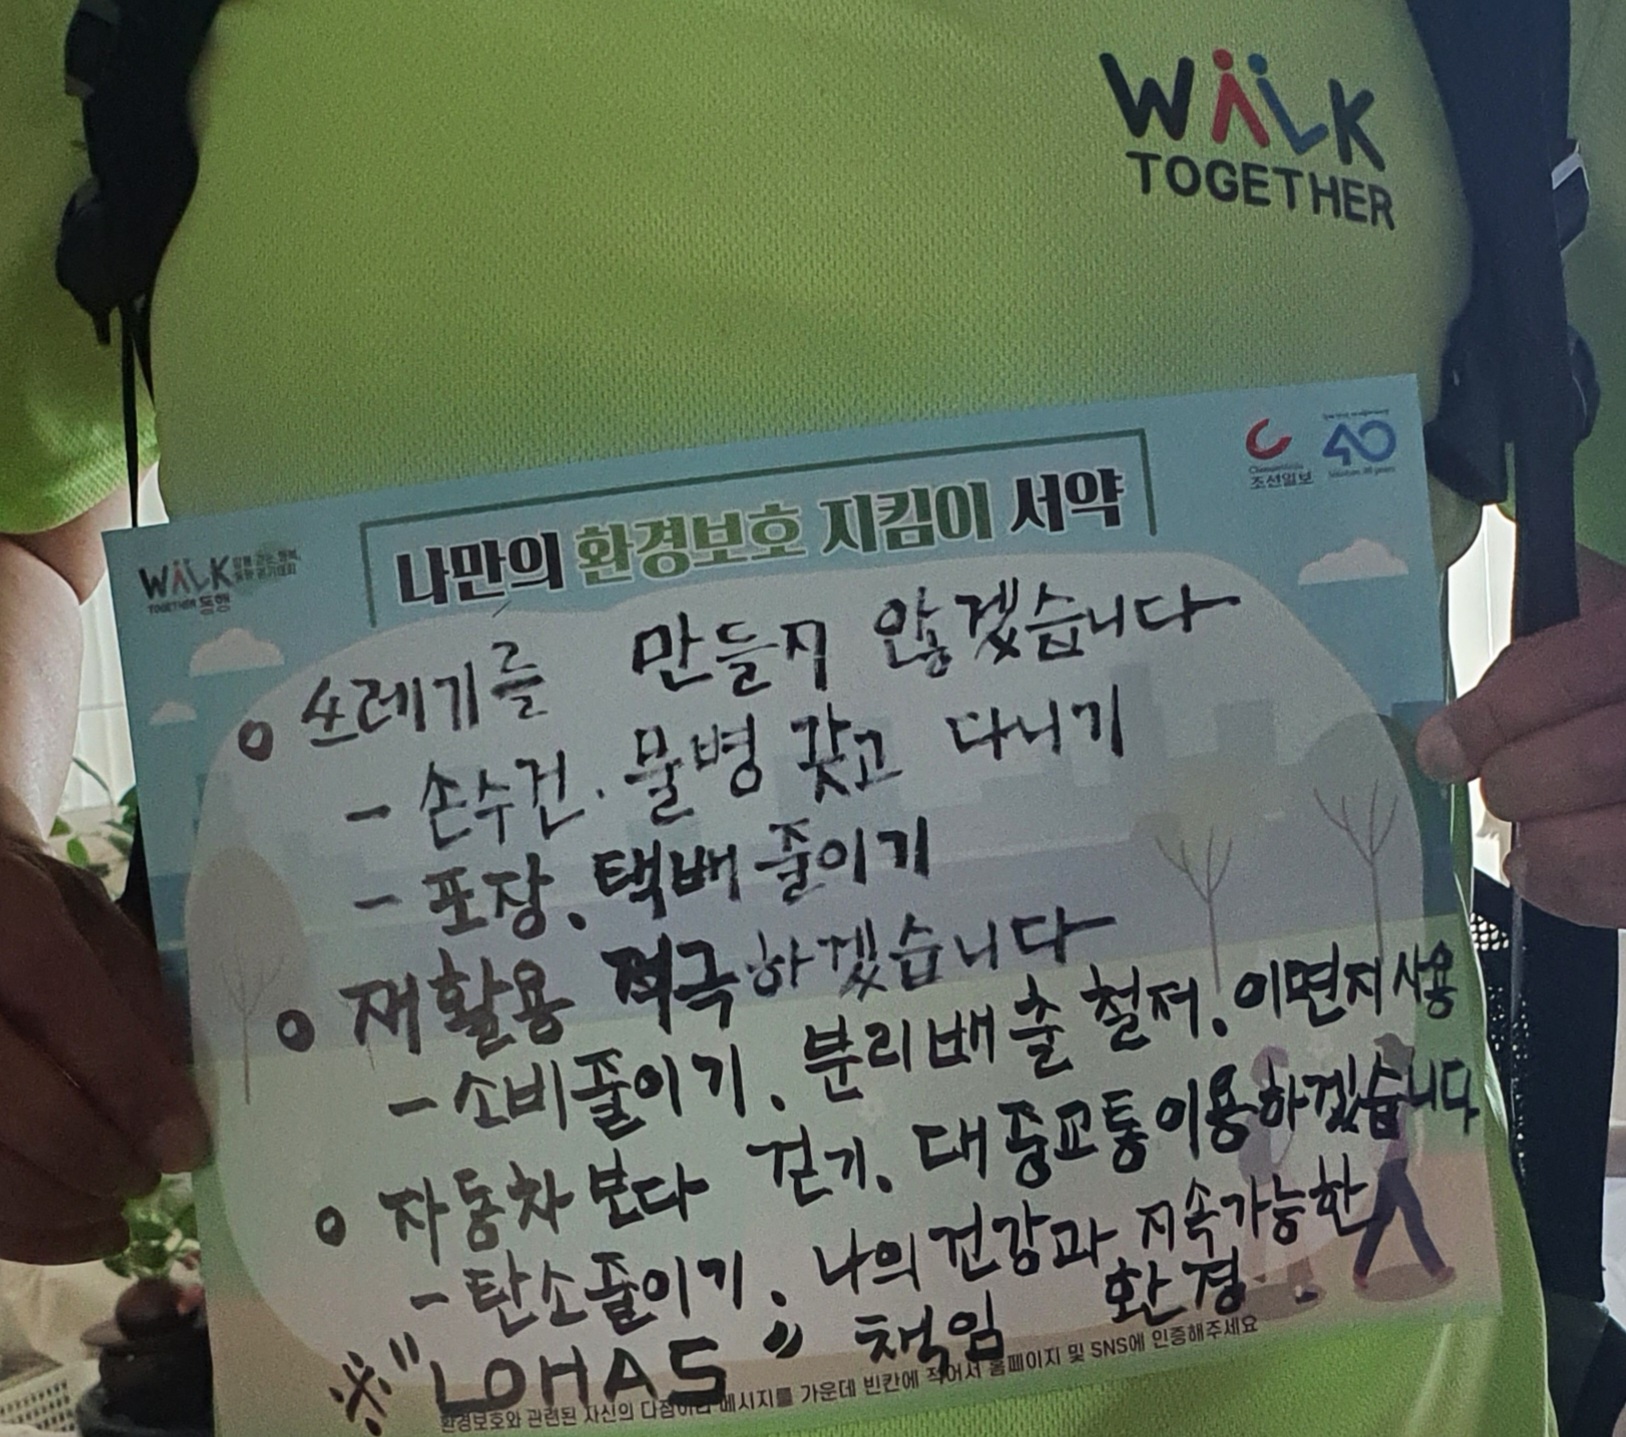 WALK
TOGETHER
조선일보
40
WALK
TOGETHER 동행
나만의 환경보호 지킴이 서약
o 쓰레기를 만들지 않겠습니다
- 손수건. 물병 갖고 다니기
- 포장. 택배 줄이기
o 재활용 적극하겠습니다
- 소비줄이기. 분리배출 철저. 이면지 사용
o 자동차 보다 걷기. 대중교통이용하겠습니다
- 탄소줄이기. 나의 건강과 지속가능한
환경.
※ "LOHAS" 책임
환경보호와 관련된 자신의 다짐이나 메시지를 가운데 빈칸에 적어서 홈페이지 및 SNS에 인증해주세요